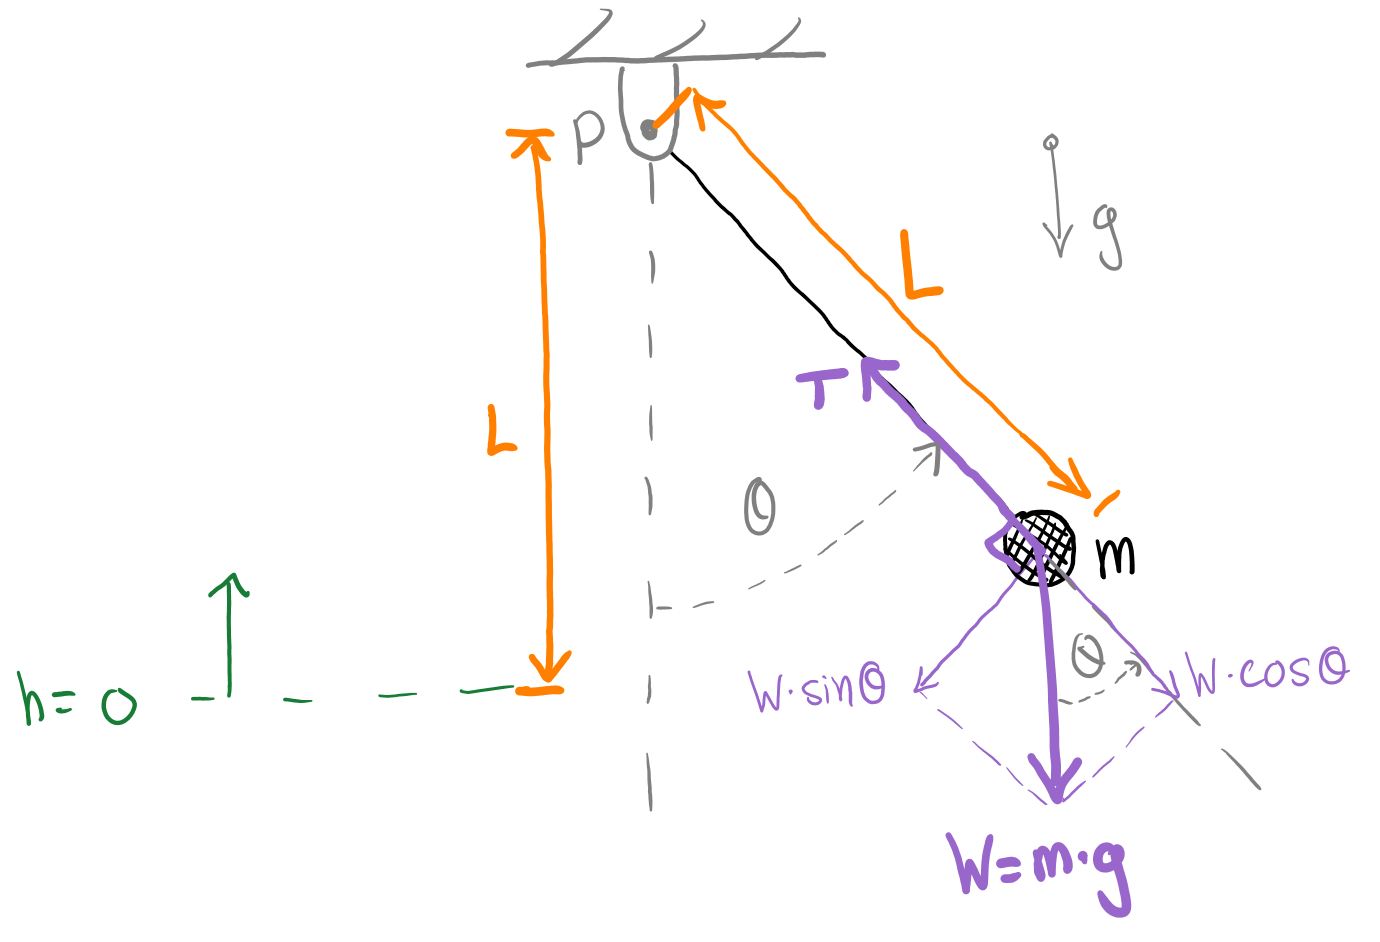 P
g
L
T
L
θ
m
θ
W·sinθ
W·cosθ
h=0
W=m·g